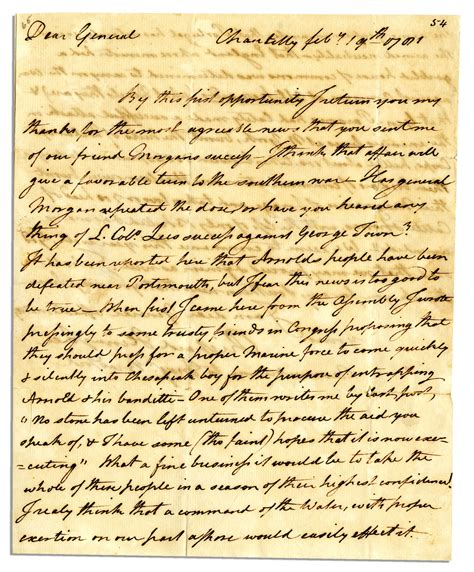 54
Dear General Chantilly feby 19th 1781
By this first opportunity I return you my
thanks for the most agreeable news that you sent me
of our friend Morgans success - I think that affair will
give a favorable turn to the southern war. Has general
Morgan repeated the dose, or have you heared any
thing of L. Colo. Lees success against George Town?
It has been reported here that Arnolds people have been
defeated near Portsmouth, but I fear this news is too good to
be true - When first I came here from the Assembly I wrote
pressingly to some trusty friends in Congress proposing that
they should press for a proper Marine force to come quickly
& silently into Chesapeak bay for the purpose of entrapping
Arnold & his bandetti - One of them writes me by last post,
"No stone has been left unturned to procure the aid you
speak of, & I have some (tho faint) hopes that it is now exe-
=cuting" What a fine business it would be to take the
whole of these people in a season of their highest confidence!
I realy think that a command of the Water, with proper
exertion on our part ashore would easily effect it.